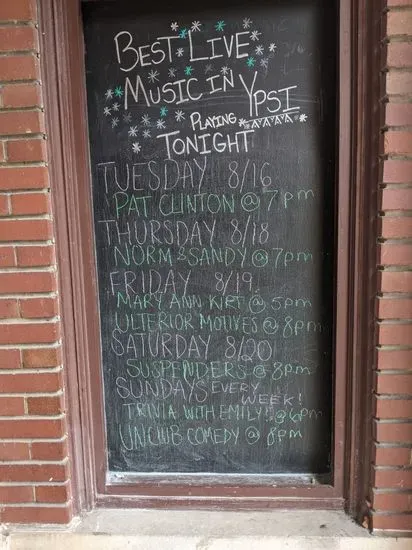 BEST LIVE
MUSIC IN YPSI
PLAYING
TONIGHT
TUESDAY 8/16
PAT CLINTON @ 7pm
THURSDAY 8/18
NORM & SANDY @ 7pm
FRIDAY 8/19
MARY ANN KIRT @ 5pm
ULTERIOR MOTIVES @ 8pm
SATURDAY 8/20
SUSPENDERS @ 8pm
SUNDAYS EVERY WEEK!
TRIVIA WITH EMILY! @ 6pm
COMEDY @ 8pm